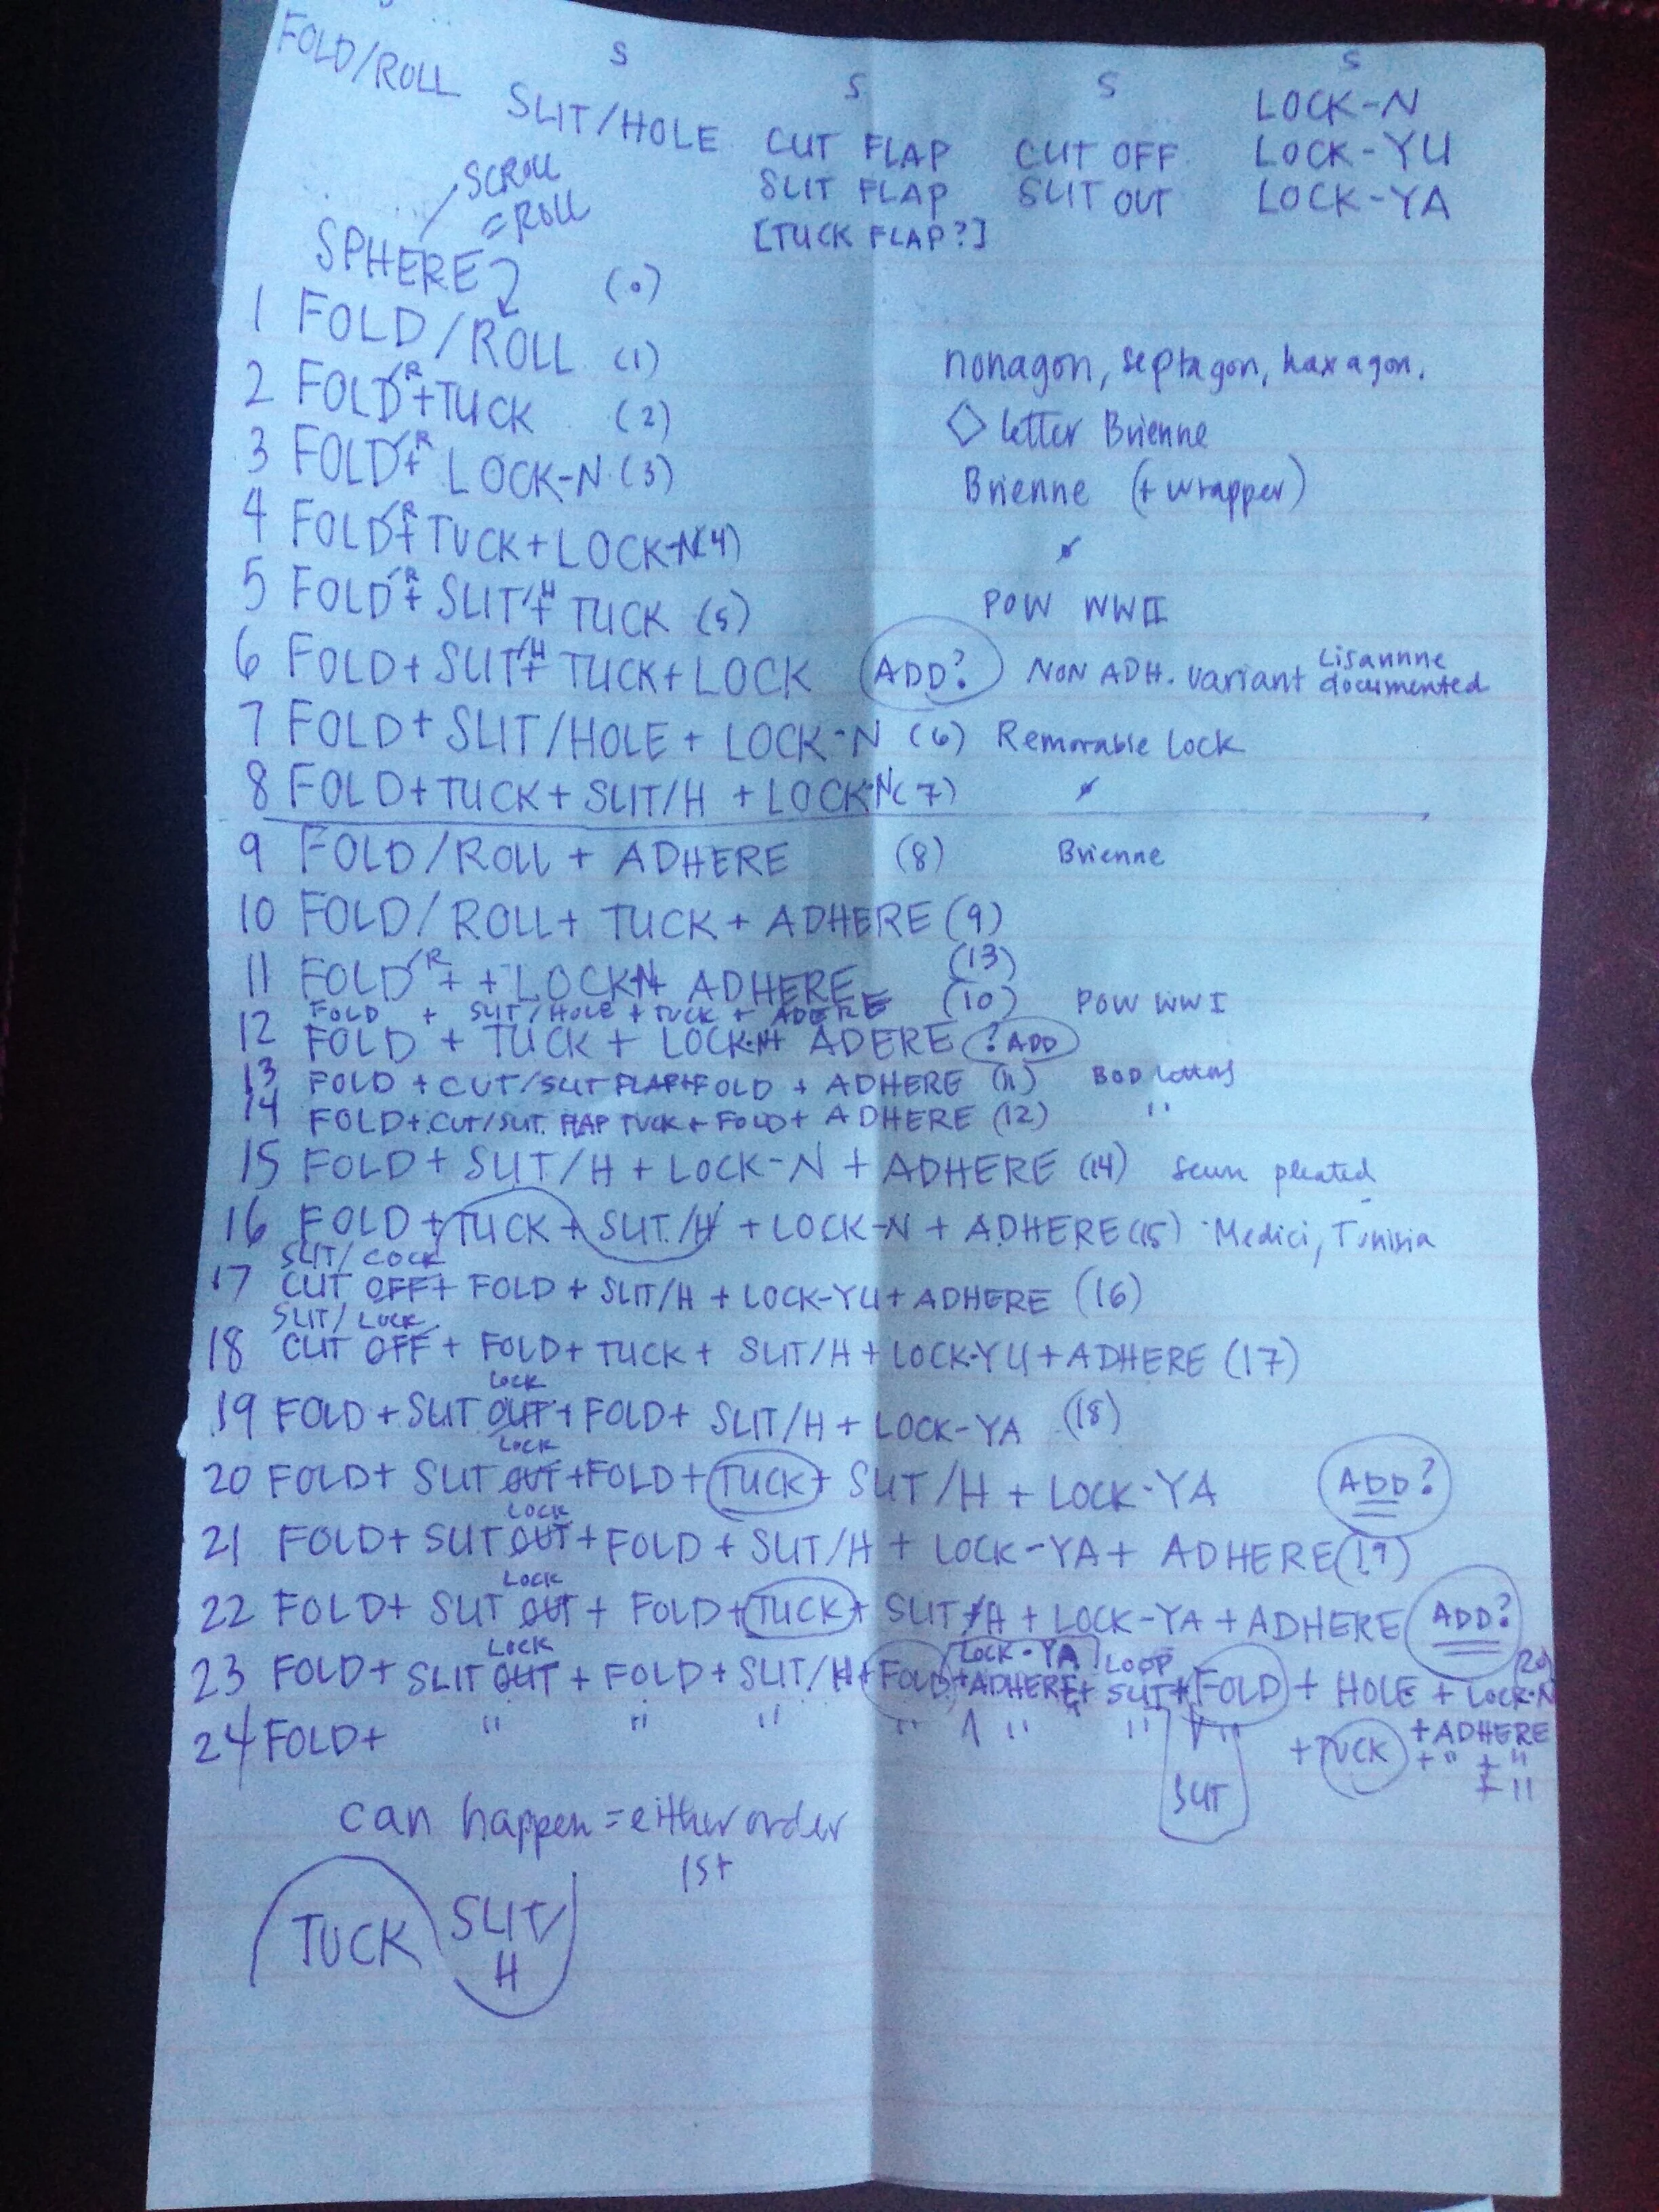 FOLD/ROLL
S S S S
SLIT/HOLE CUT FLAP CUT OFF LOCK-N
SLIT FLAP SLIT OUT LOCK-YU
[TUCK FLAP?] LOCK-YA
SCROLL
=ROLL
SPHERE
1 FOLD/ROLL (0)
2 FOLD/R+TUCK (1) nonagon, septagon, haxagon.
3 FOLD/R+ LOCK-N (2) ◇ letter Brienne
4 FOLD/R+TUCK+LOCK-N (3) Brienne (+ wrapper)
(4)
5 FOLD/R+ SLIT/H+ TUCK (5) POW WWII
6 FOLD+ SLIT/H+ TUCK+LOCK ADD? NON ADH. variant Lisannne documented
7 FOLD+SLIT/HOLE + LOCK-N (6) Removable lock
8 FOLD+TUCK+SLIT/H +LOCK-N (7)
9 FOLD/ROLL + ADHERE (8) Brienne
10 FOLD/ROLL+ TUCK + ADHERE (9)
11 FOLD/R + +LOCK-N+ ADHERE (13)
FOLD + SLIT/HOLE + TUCK + ADERE (10) POW WWI
12 FOLD + TUCK + LOCK-N+ ADERE ?ADD
13 FOLD +CUT/SLIT FLAP+FOLD + ADHERE (11) BOD letters
14 FOLD+CUT/SLIT FLAP TUCK+ FOLD+ ADHERE (12) "
15 FOLD+ SLIT/H + LOCK-N + ADHERE (14) sewn pleated
16 FOLD+TUCK+ SLIT/H +LOCK-N + ADHERE (15) Medici, Tunisia
SLIT/LOCK
17 CUT OFF+ FOLD + SLIT/H +LOCK-YU+ADHERE (16)
SLIT/LOCK
18 CUT OFF + FOLD+ TUCK+ SLIT/H+LOCK-YU+ADHERE (17)
LOCK
19 FOLD+SLIT OUT+FOLD+ SLIT/H + LOCK-YA (18)
LOCK
20 FOLD+ SLIT OUT+FOLD+TUCK+ SLIT/H + LOCK-YA ADD?
LOCK
21 FOLD+ SLIT OUT+FOLD + SLIT/H + LOCK-YA+ ADHERE (19)
LOCK
22 FOLD+ SLIT OUT + FOLD+TUCK+ SLIT/H + LOCK-YA +ADHERE ADD?
LOCK LOCK-YA LOOP
23 FOLD+ SLIT OUT + FOLD+SLIT/H+FOLD+ADHERE+ SLIT+FOLD + HOLE + LOCK-N
+ADHERE
24 FOLD+ " " " " " " " +TUCK +" +"
+ "
SLIT
can happen=either order
1st
TUCK SLIT/
H